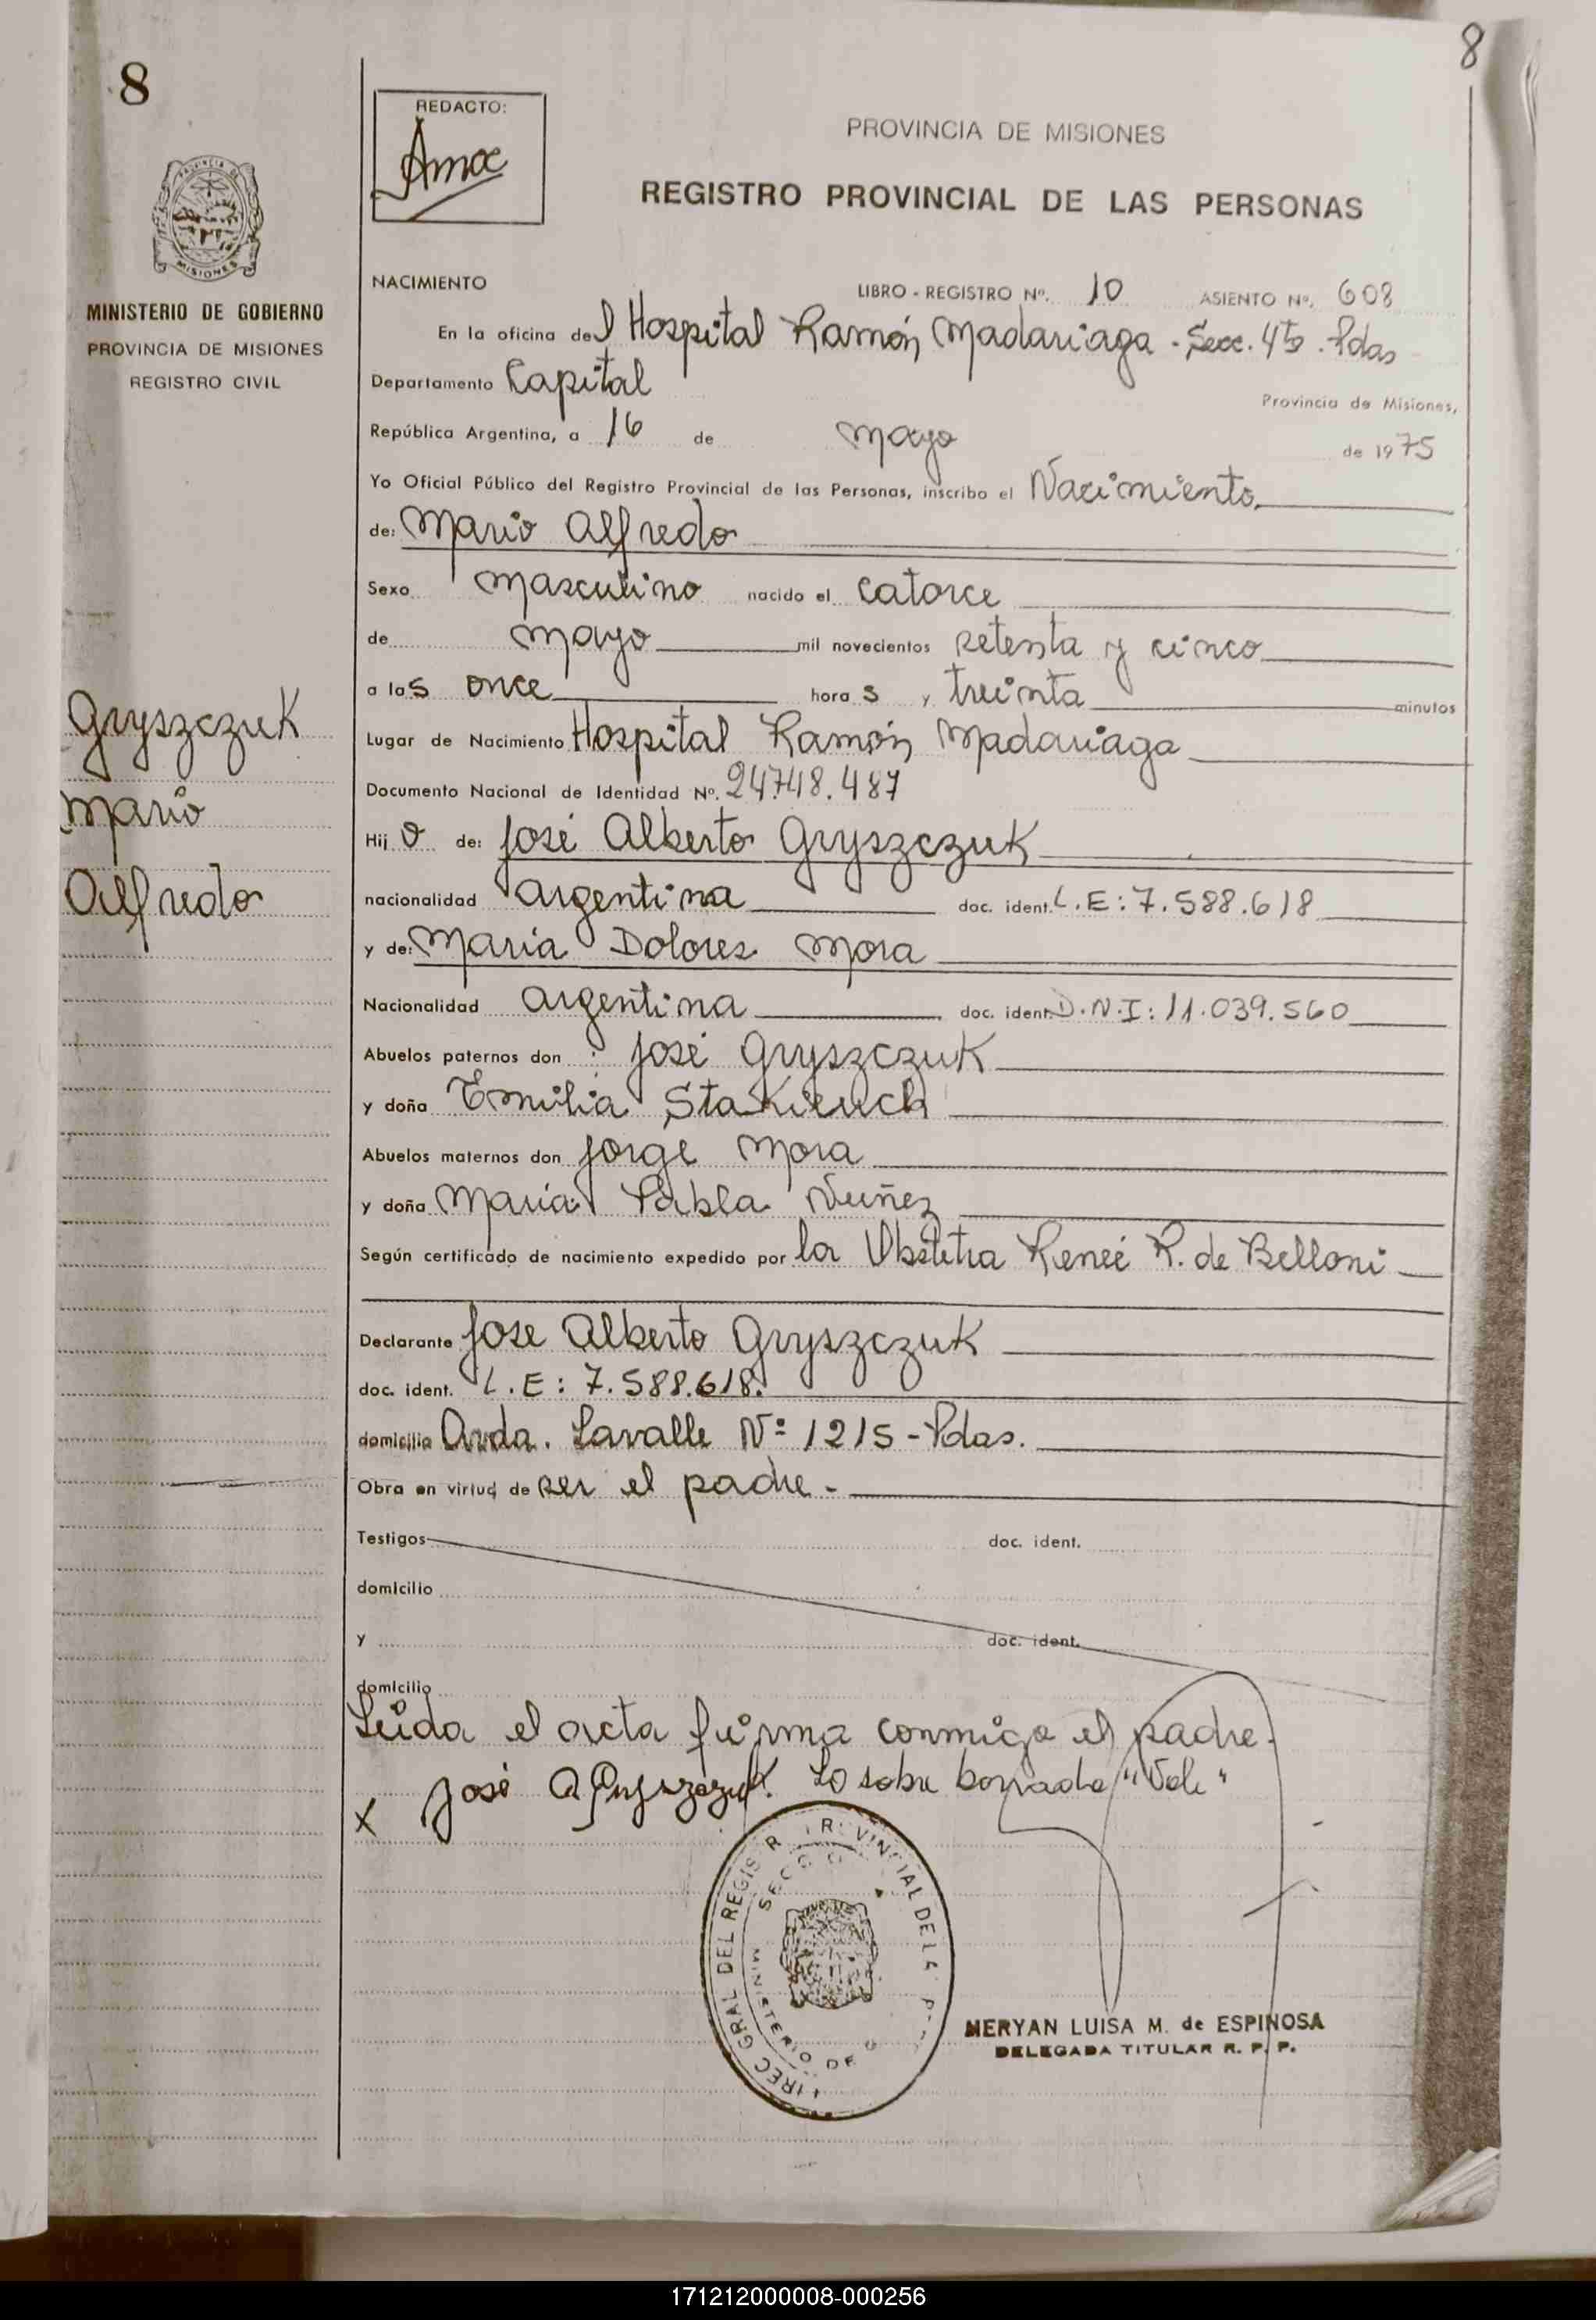 8
8
REDACTO:
PROVINCIA DE MISIONES
REGISTRO PROVINCIAL DE LAS PERSONAS
MISIONES
MINISTERIO DE GOBIERNO
PROVINCIA DE MISIONES
REGISTRO CIVIL
NACIMIENTO LIBRO - REGISTRO Nº. 10 ASIENTO Nº. 608
En la oficina del Hospital Ramón Madariaga - Secc. 4ta. Pdas
Departamento Capital Provincia de Misiones,
República Argentina, a 16 de mayo de 1975
Yo Oficial Público del Registro Provincial de las Personas, inscribo el Nacimiento
de: Mario Alfredo
Sexo masculino nacido el catorce
de mayo mil novecientos setenta y cinco
a las once horas y treinta minutos
Gryszczuk
Mario
Alfredo
Lugar de Nacimiento Hospital Ramón Madariaga
Documento Nacional de Identidad Nº. 24.748.487
Hijo de: José Alberto Gryszczuk
nacionalidad argentina doc. ident. L.E: 7.588.618
y de: María Dolores Mora
Nacionalidad argentina doc. ident. D.N.I: 11.039.560
Abuelos paternos don : José Gryszczuk
y doña Emilia
Abuelos maternos don Jorge Mora
y doña María Pabla Nuñez
Según certificado de nacimiento expedido por la Obstetra Reneé R. de Belloni
Declarante Jose Alberto Gryszczuk
doc. ident. L.E: 7.588.618.
domicilio Avda. Lavalle Nº 1215 - Pdas.
Obra en virtud de ser el padre -
Testigos doc. ident.
domicilio
y doc. ident.
domicilio
Leida el acta firma conmigo el padre.
X José A Gryszczuk. Lo sobre borrado "Vale"
MERYAN LUISA M. de ESPINOSA
DELEGADA TITULAR R. P. P.
171212000008-000256